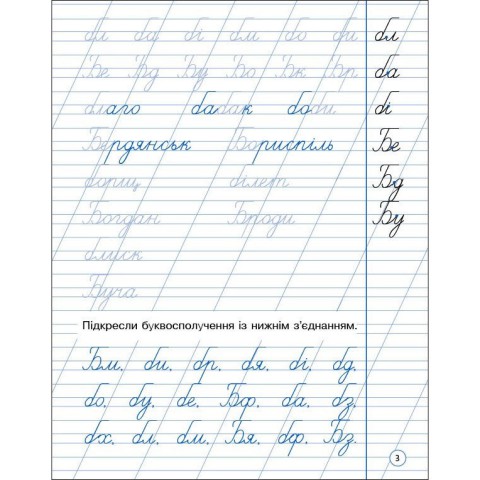 бл ба бі бм бо би бл
Бе Бд Бу Бо Бк Бр ба
благо бабак боби бі
Бердянськ Бориспіль Бе
борщ білет Бд
Богдан Броди Бу
блиск
Буча
Підкресли буквосполучення із нижнім з’єднанням.
Бм. би. бр. бя. бі. бд.
бо. бу. бе. Бф. ба. бз.
бх. бл. бм. Бя. бф. Бз.
3